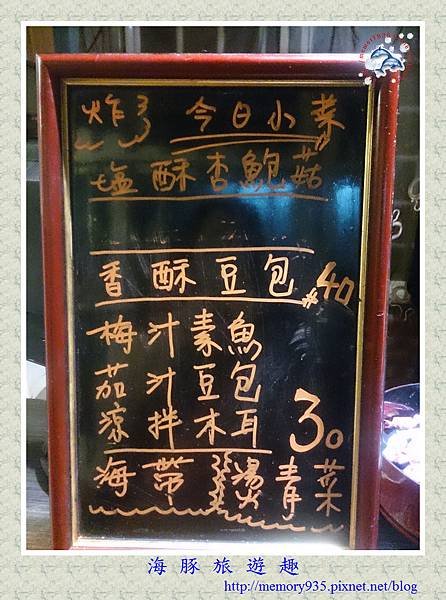 炸 今日小菜
塩酥杏鮑菇
香酥豆包 40
梅汁素魚
茄汁豆包
涼拌木耳 30
海帶 燙青菜
海豚旅遊趣
http://memory935.pixnet.net/blog